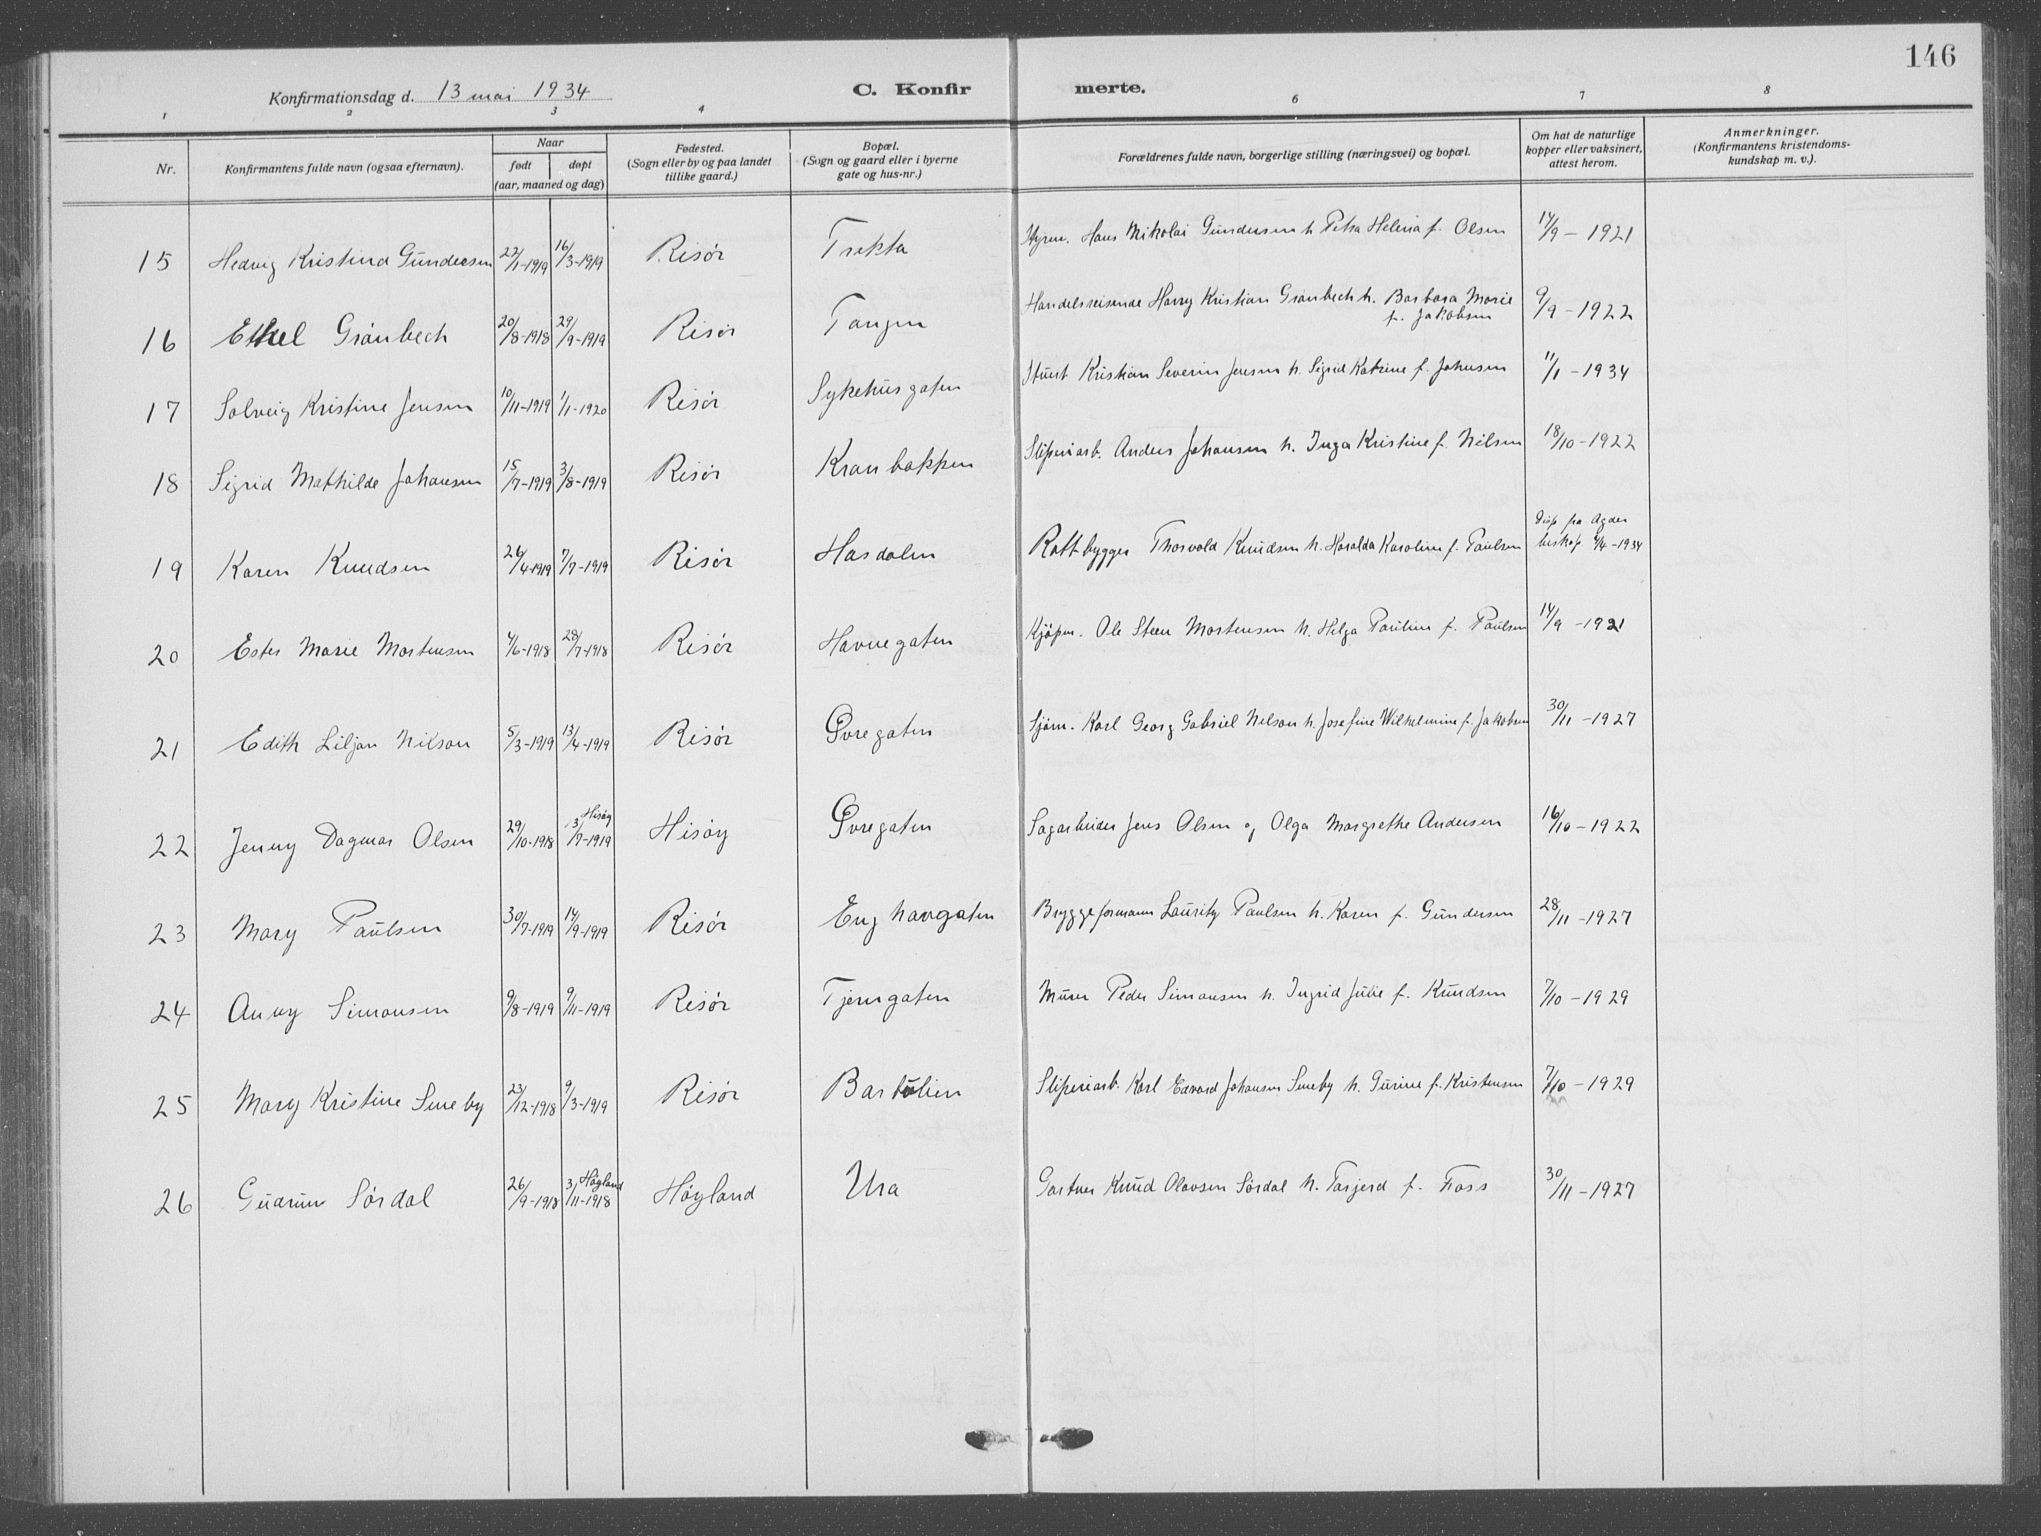 146
Konfirmationsdag d. 13 mai 1934
C. Konfir merte.
1 2 3 4 6 7 8
Nr.
Konfirmantens fulde navn (ogsaa efternavn).
Naar
født døpt
(aar, maaned og dag)
Fødested.
(Sogn eller by og paa landet
tillike gaard.)
Bopæl.
(Sogn og gaard eller i byerne
gate og hus-nr.)
Forældrenes fulde navn, borgerlige stilling (næringsvei) og bopæl.
Om hat de naturlige
kopper eller vaksinert,
attest herom.
Anmerkninger.
(Konfirmantens kristendoms-
kundskap m. v.).
15 Hedvig Kristina Gundersen 22/1-1919 16/3-1919 Risör Trekta Styrm. Hans Nikolai Gundersen h. Petra Helena f. Olsen 14/9 - 1921
16 Ethel Grönbech 20/8-1918 29/9-1919 Risör Tangen Handelsreisende Harry Kristian Grönbech h. Barbara Marie
f. Jakobsen 9/9 - 1922
17 Solveig Kristine Jensen 10/11-1919 1/1-1920 Risör Sykehusgaten Stuert Kristian Severin Jensen h. Sigrid Katrine f. Johnsen 11/1 - 1934
18 Sigrid Mathilde Johansen 15/7-1919 3/8-1919 Risör Kranbakken Sliperiarb. Anders Johansen h. Inga Kristine f. Nilsen 18/10 - 1922
19 Karen Knudsen 26/4-1919 7/7-1919 Risör Hasdalen Thorvald Knudsen h. Haralda Karoline f. Paulsen Disp fra Agder
biskop /4-1934
20 Ester Marie Mortensen /6-1918 28/7-1918 Risör Havnegaten Kjöpm. Ole Steen Mortensen h. Helga Pauline f. Paulsen 14/9 - 1921
21 Edith Liljan Nilson 5/3-1919 13/4-1919 Risör Övregaten Sjöm. Karl Georg Gabriel Nilson h. Josefine Wilhelmine f. Jakobsen 30/11 - 1927
22 Jenny Dagmar Olsen 29/10-1918 3/7-1919 Hisöy Hisöy Övregaten Sagarbeider Jens Olsen og Olga Margrethe Andersen 16/10 - 1922
23 Mary Paulsen 30/7-1919 14/9-1919 Risör Enghavgaten Bryggeformann Lauritz Paulsen h. Karen f. Gundersen 28/11 - 1927
24 Anny Simonsen 9/8-1919 9/11-1919 Risör Tjerngaten Murer Peder Simonsen h. Ingrid Julie f. Knudsen 7/10 - 1929
25 Mary Kristine Smeby 23/12-1918 9/3-1919 Risör Barbulien Sliperiarb. Karl Edvard Johansen Smeby h. Gurine f. Kristensen 7/10 - 1929
26 Gudrun Sördal 26/9-1918 3/11-1918 Höyland Höyland Ura Gartner Knud Olavsen Sördal h. Tarjerd f. Foss 30/11 - 1927